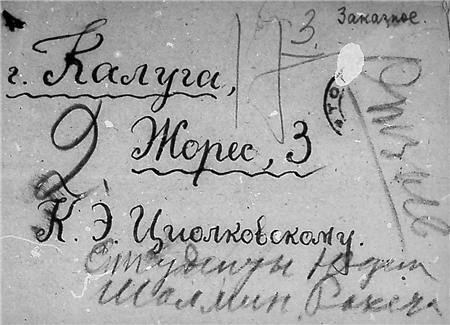 3. Заказное.
г. Калуга,
2 Жорес, 3
К. Э. Циолковскому.
Студенты
Шолмин,